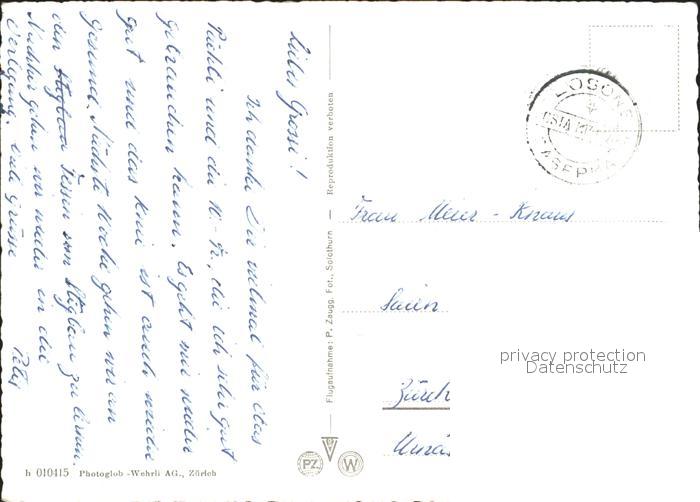 Liebes Grosi!
Ich danke Dir vielmal für das
und die 10.- Fr., die ich sehr gut
gebrauchen kann. Es geht mir wieder
gut und das Knie ist auch wieder
gesund. Nächste Woche gehen wir an
den Tessin zu
Nachher gehen wir wieder in die
Verlegung. Viele Grüsse
Peter
Reproduktion verboten
Flugaufnahme: P. Zaugg, Fot., Solothurn
LOSONE
CASERMA
Frau Meier-Knaus
Zürich
privacy protection
Datenschutz
PZ
W
h 010415 Photoglob-Wehrli AG., Zürich